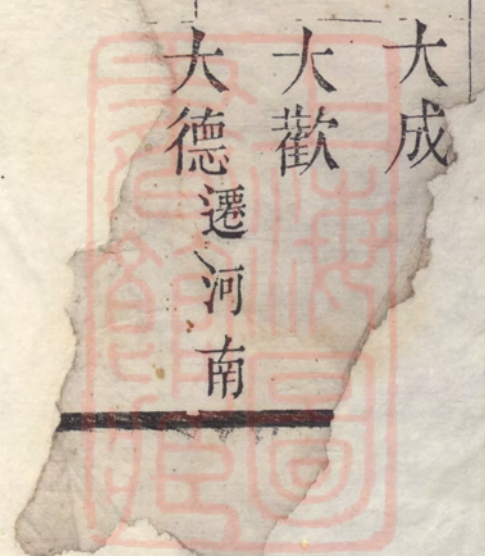 大成
大歡
大德遷河南